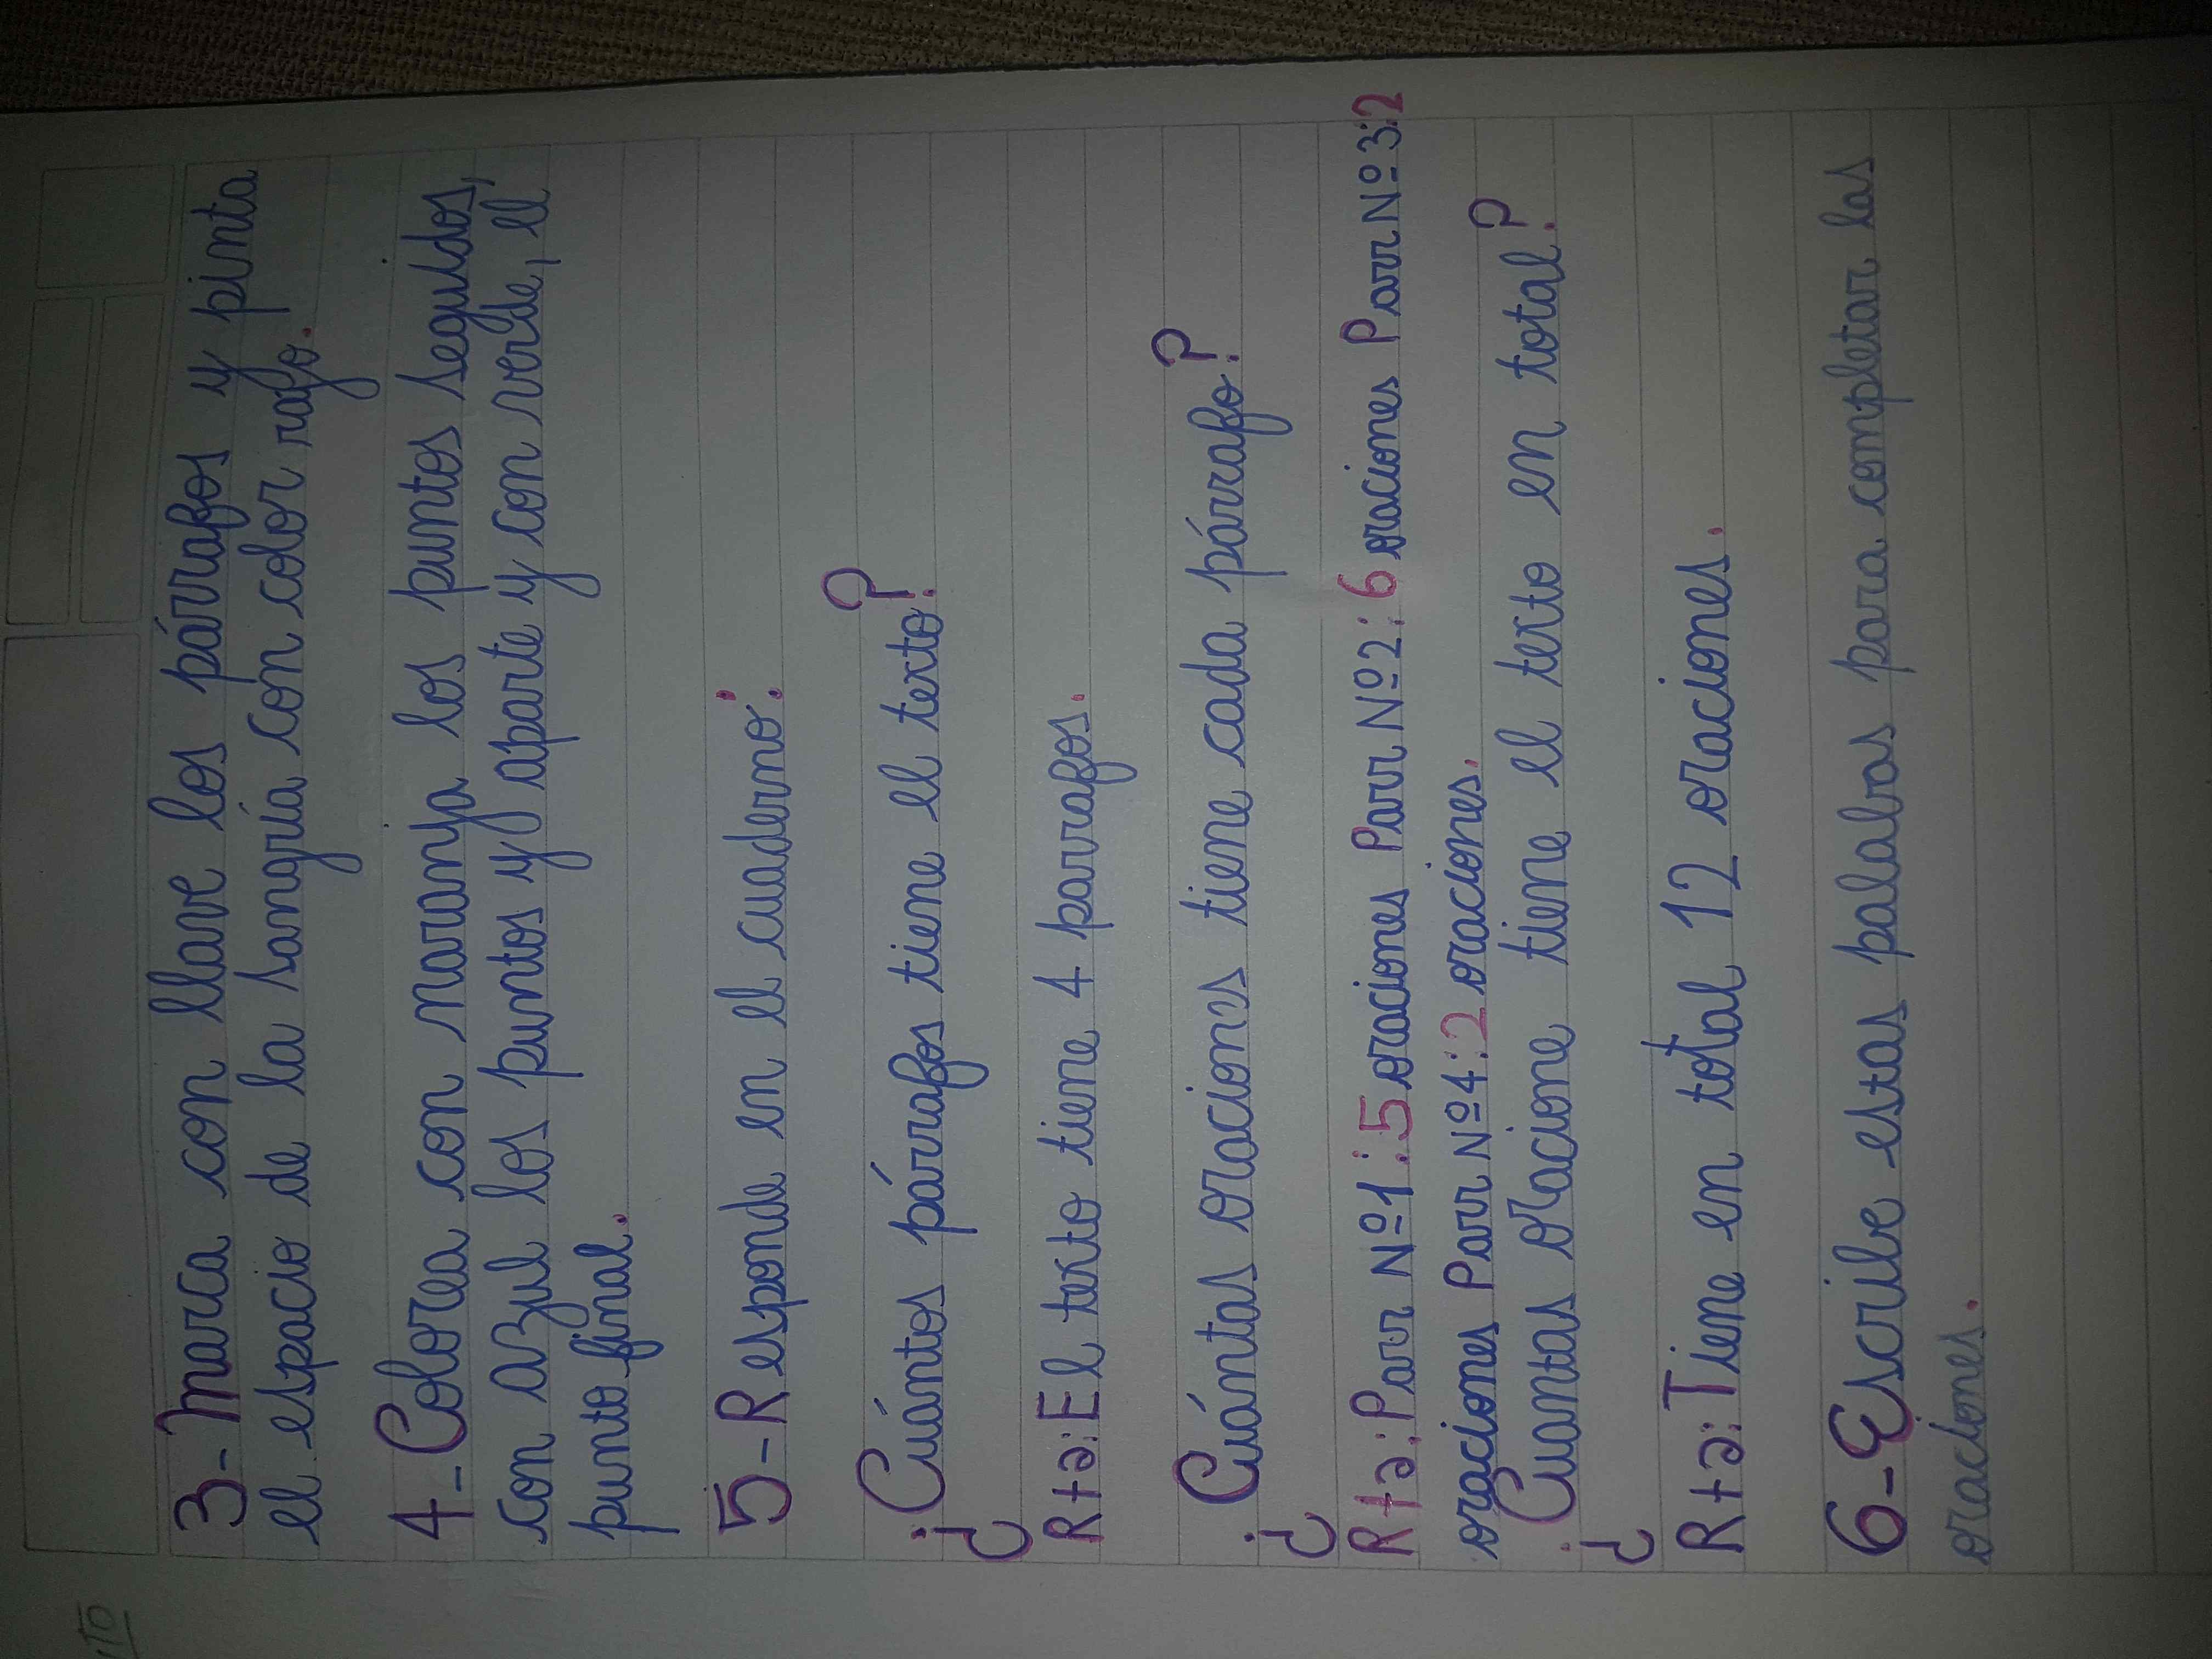 3-Marca con llave los párrafos y pinta
el espacio de la sangría con color rojo.
4-Colorea con naranja los puntos seguidos,
con azul los puntos y aparte y con verde, el
punto final.
5-Responde en el cuaderno:
¿Cuántos párrafos tiene el texto?
Rta: El texto tiene 4 parrafos.
¿Cuántas oraciones tiene cada párrafo?
Rta: Parr Nº1: 5 oraciones Parr Nº2: 6 oraciones Parr Nº3:2
oraciones Parr Nº4: 2 oraciones.
¿Cuantas oracione tiene el texto en total?
Rta: Tiene en total 12 oraciones.
6-Escribe estas palabas para completar las
oraciones.